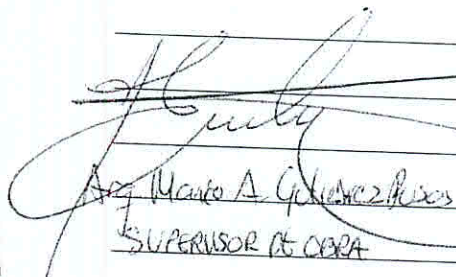 Arq Marco A. Gutierrez
SUPERVISOR DE OBRA